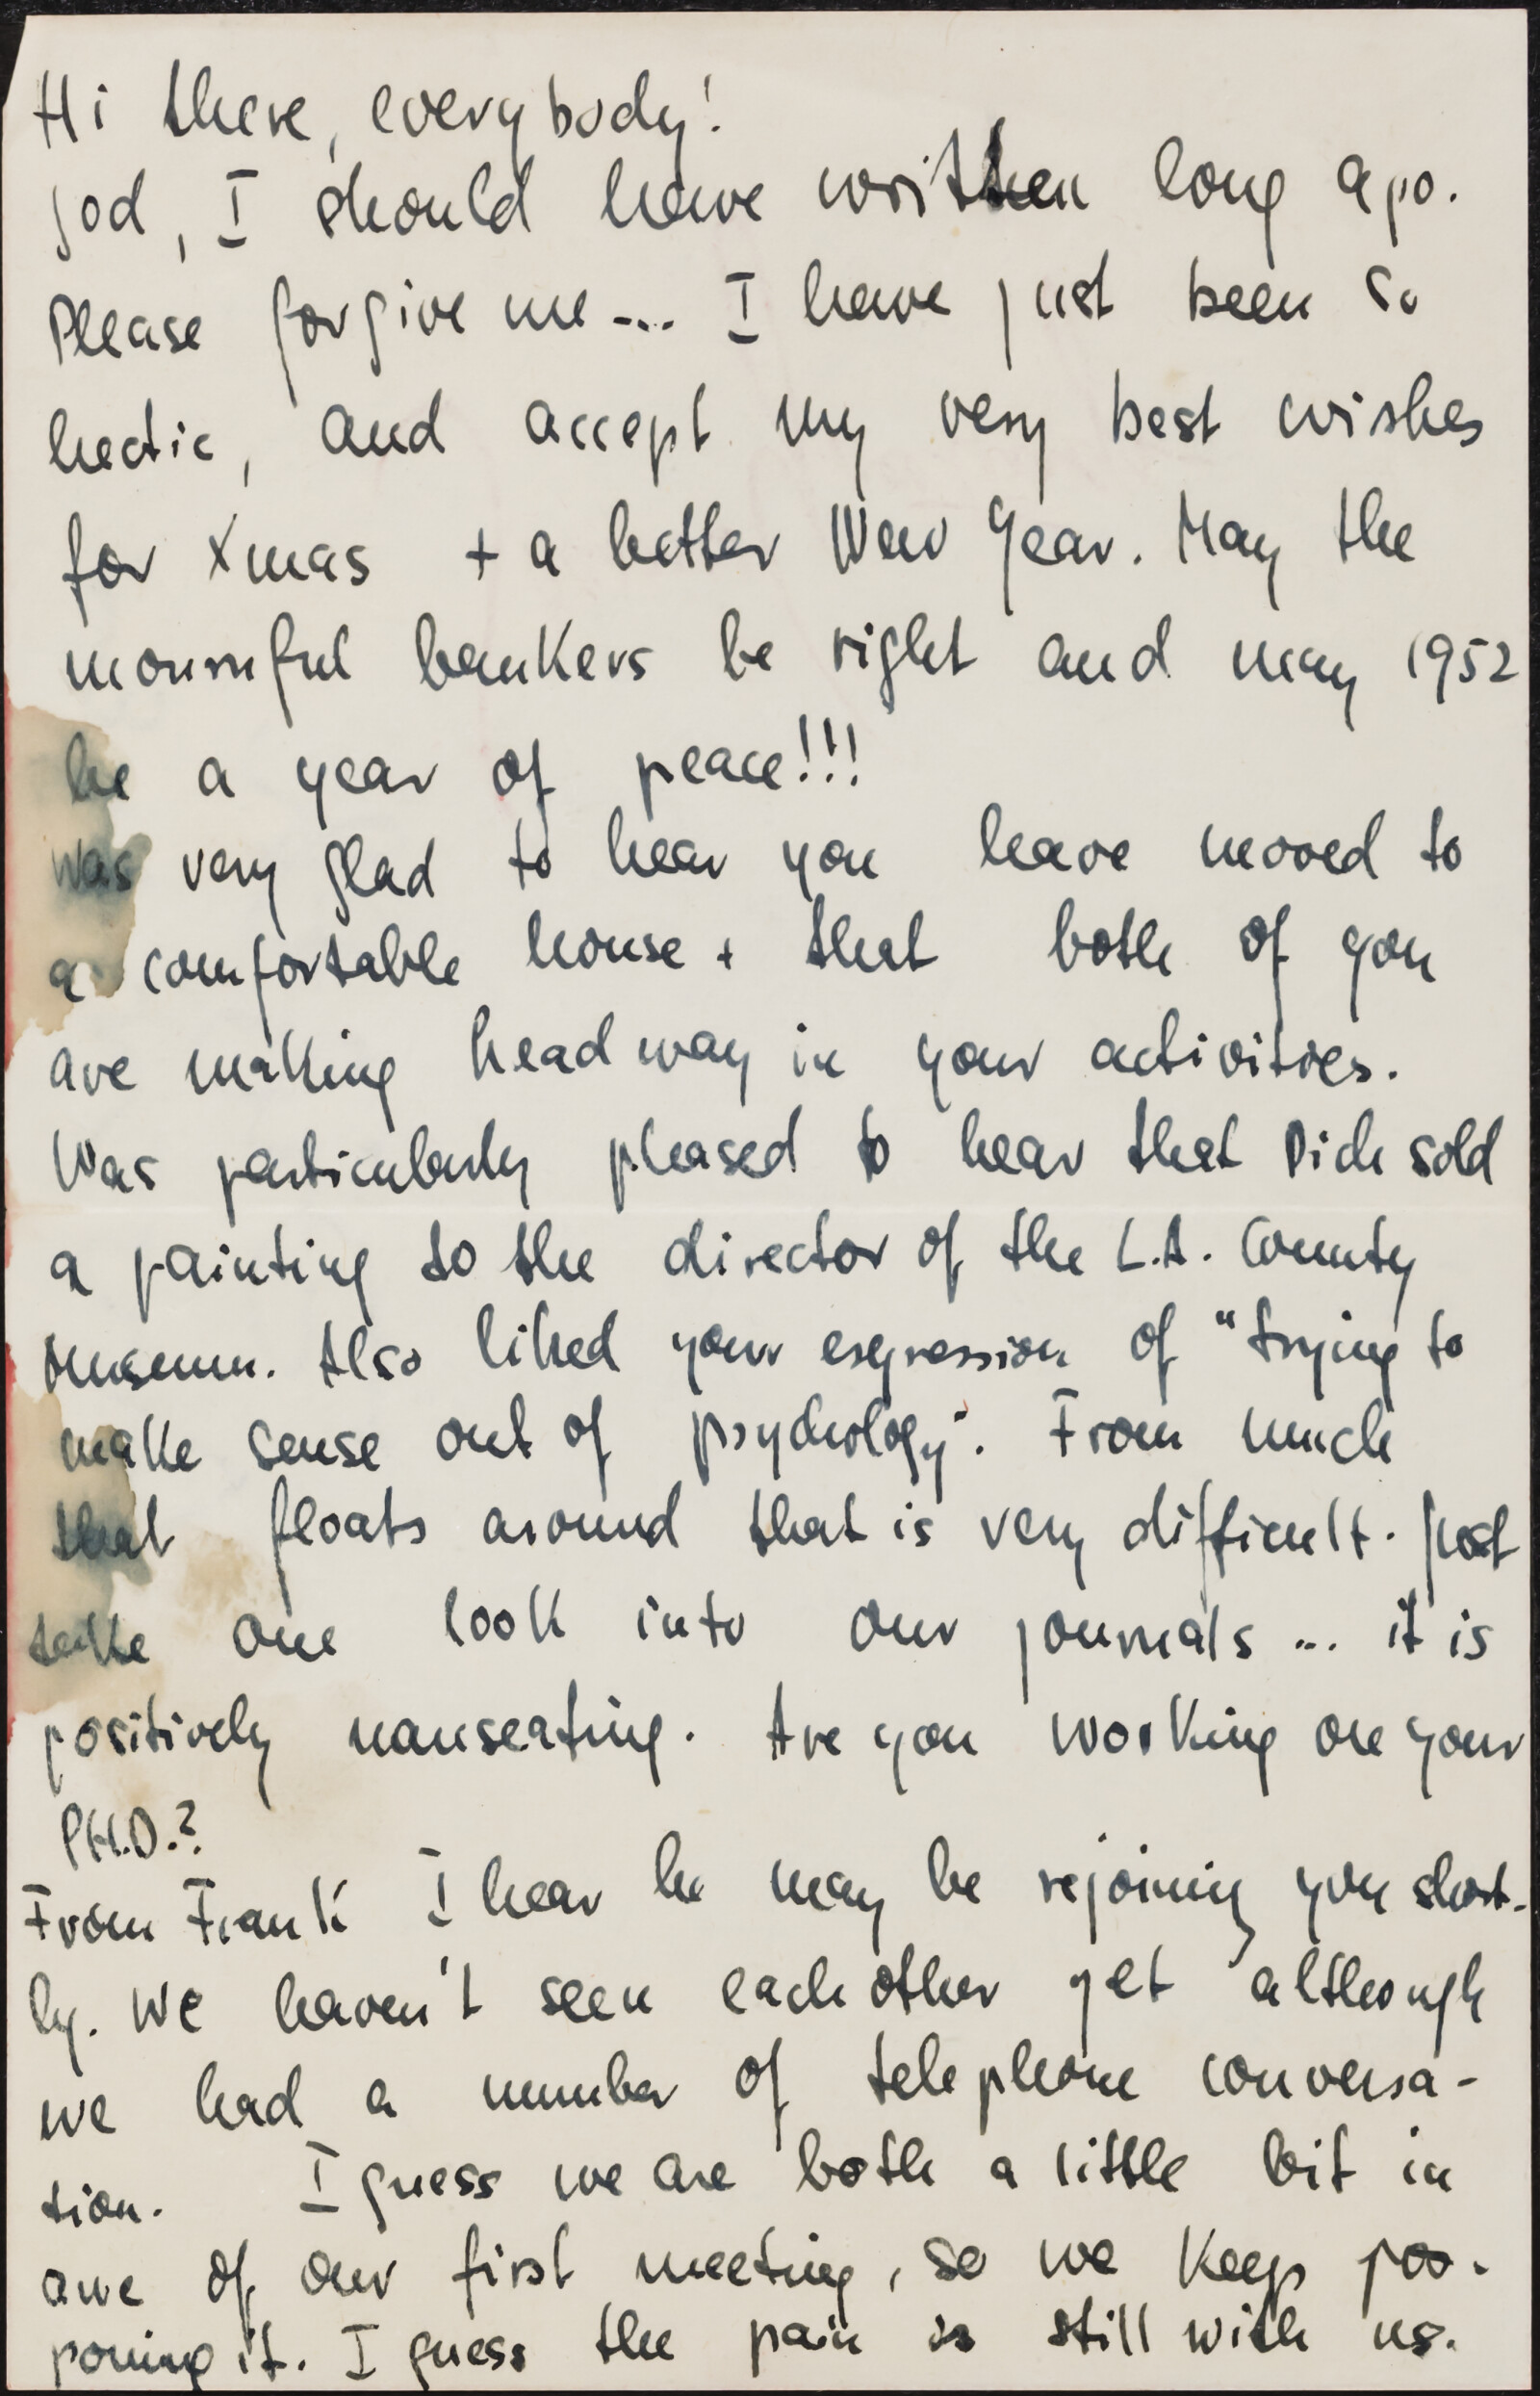 Hi there, everybody!
God, I should have written long ago.
Please forgive me --.. I have just been so
hectic, and accept my very best wishes
for Xmas + a better New Year. May the
mournful bankers be right and may 1952
be a year of peace!!!
Was very glad to hear you have moved to
a comfortable house + that both of you
are making headway in your activities.
Was particularly pleased to hear that Dick sold
a painting to the director of the L.A. County
Museum. Also liked your expression of "trying to
make sense out of psychology". From much
that floats around that is very difficult. Just
take one look into our journals ... it is
positively nauseating. Are you working on your
PH.D.?
From Frank I hear he may be rejoining you short-
ly. We haven't seen each other yet although
we had a number of telephone conversa-
tion. I guess we are both a little bit in
awe of our first meeting, so we keep pos-
poning it. I guess the pain is still with us.